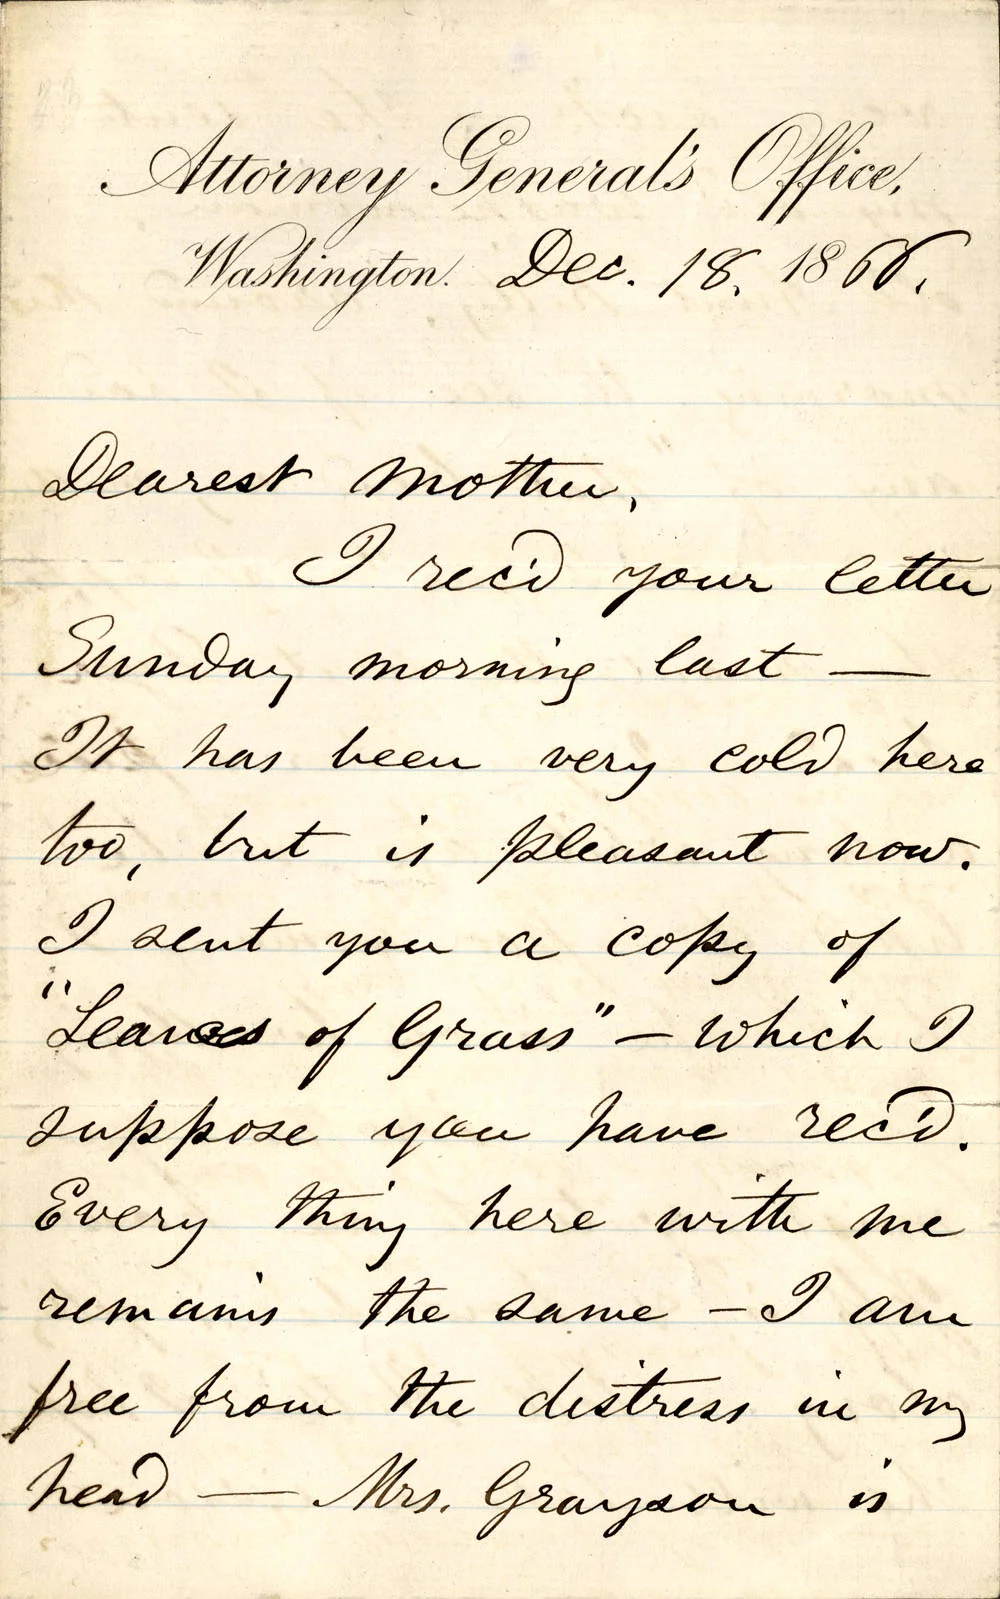 Attorney General's Office,
Washington. Dec. 18, 1866.
Dearest Mother,
I rec'd your letter
Sunday morning last —
It has been very cold here
too, but is pleasant now.
I sent you a copy of
"Leaves of Grass" — which I
suppose you have rec'd.
Every thing here with me
remains the same — I am
free from the distress in my
head — Mrs. Grayson is